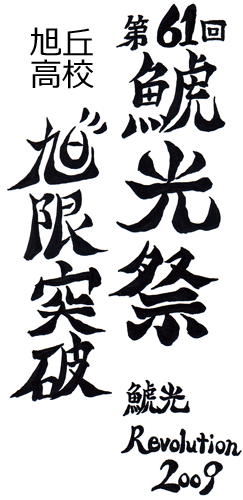 第61回
鯱光祭
旭丘
高校
旭゛限突破
鯱光
Revolution
2009